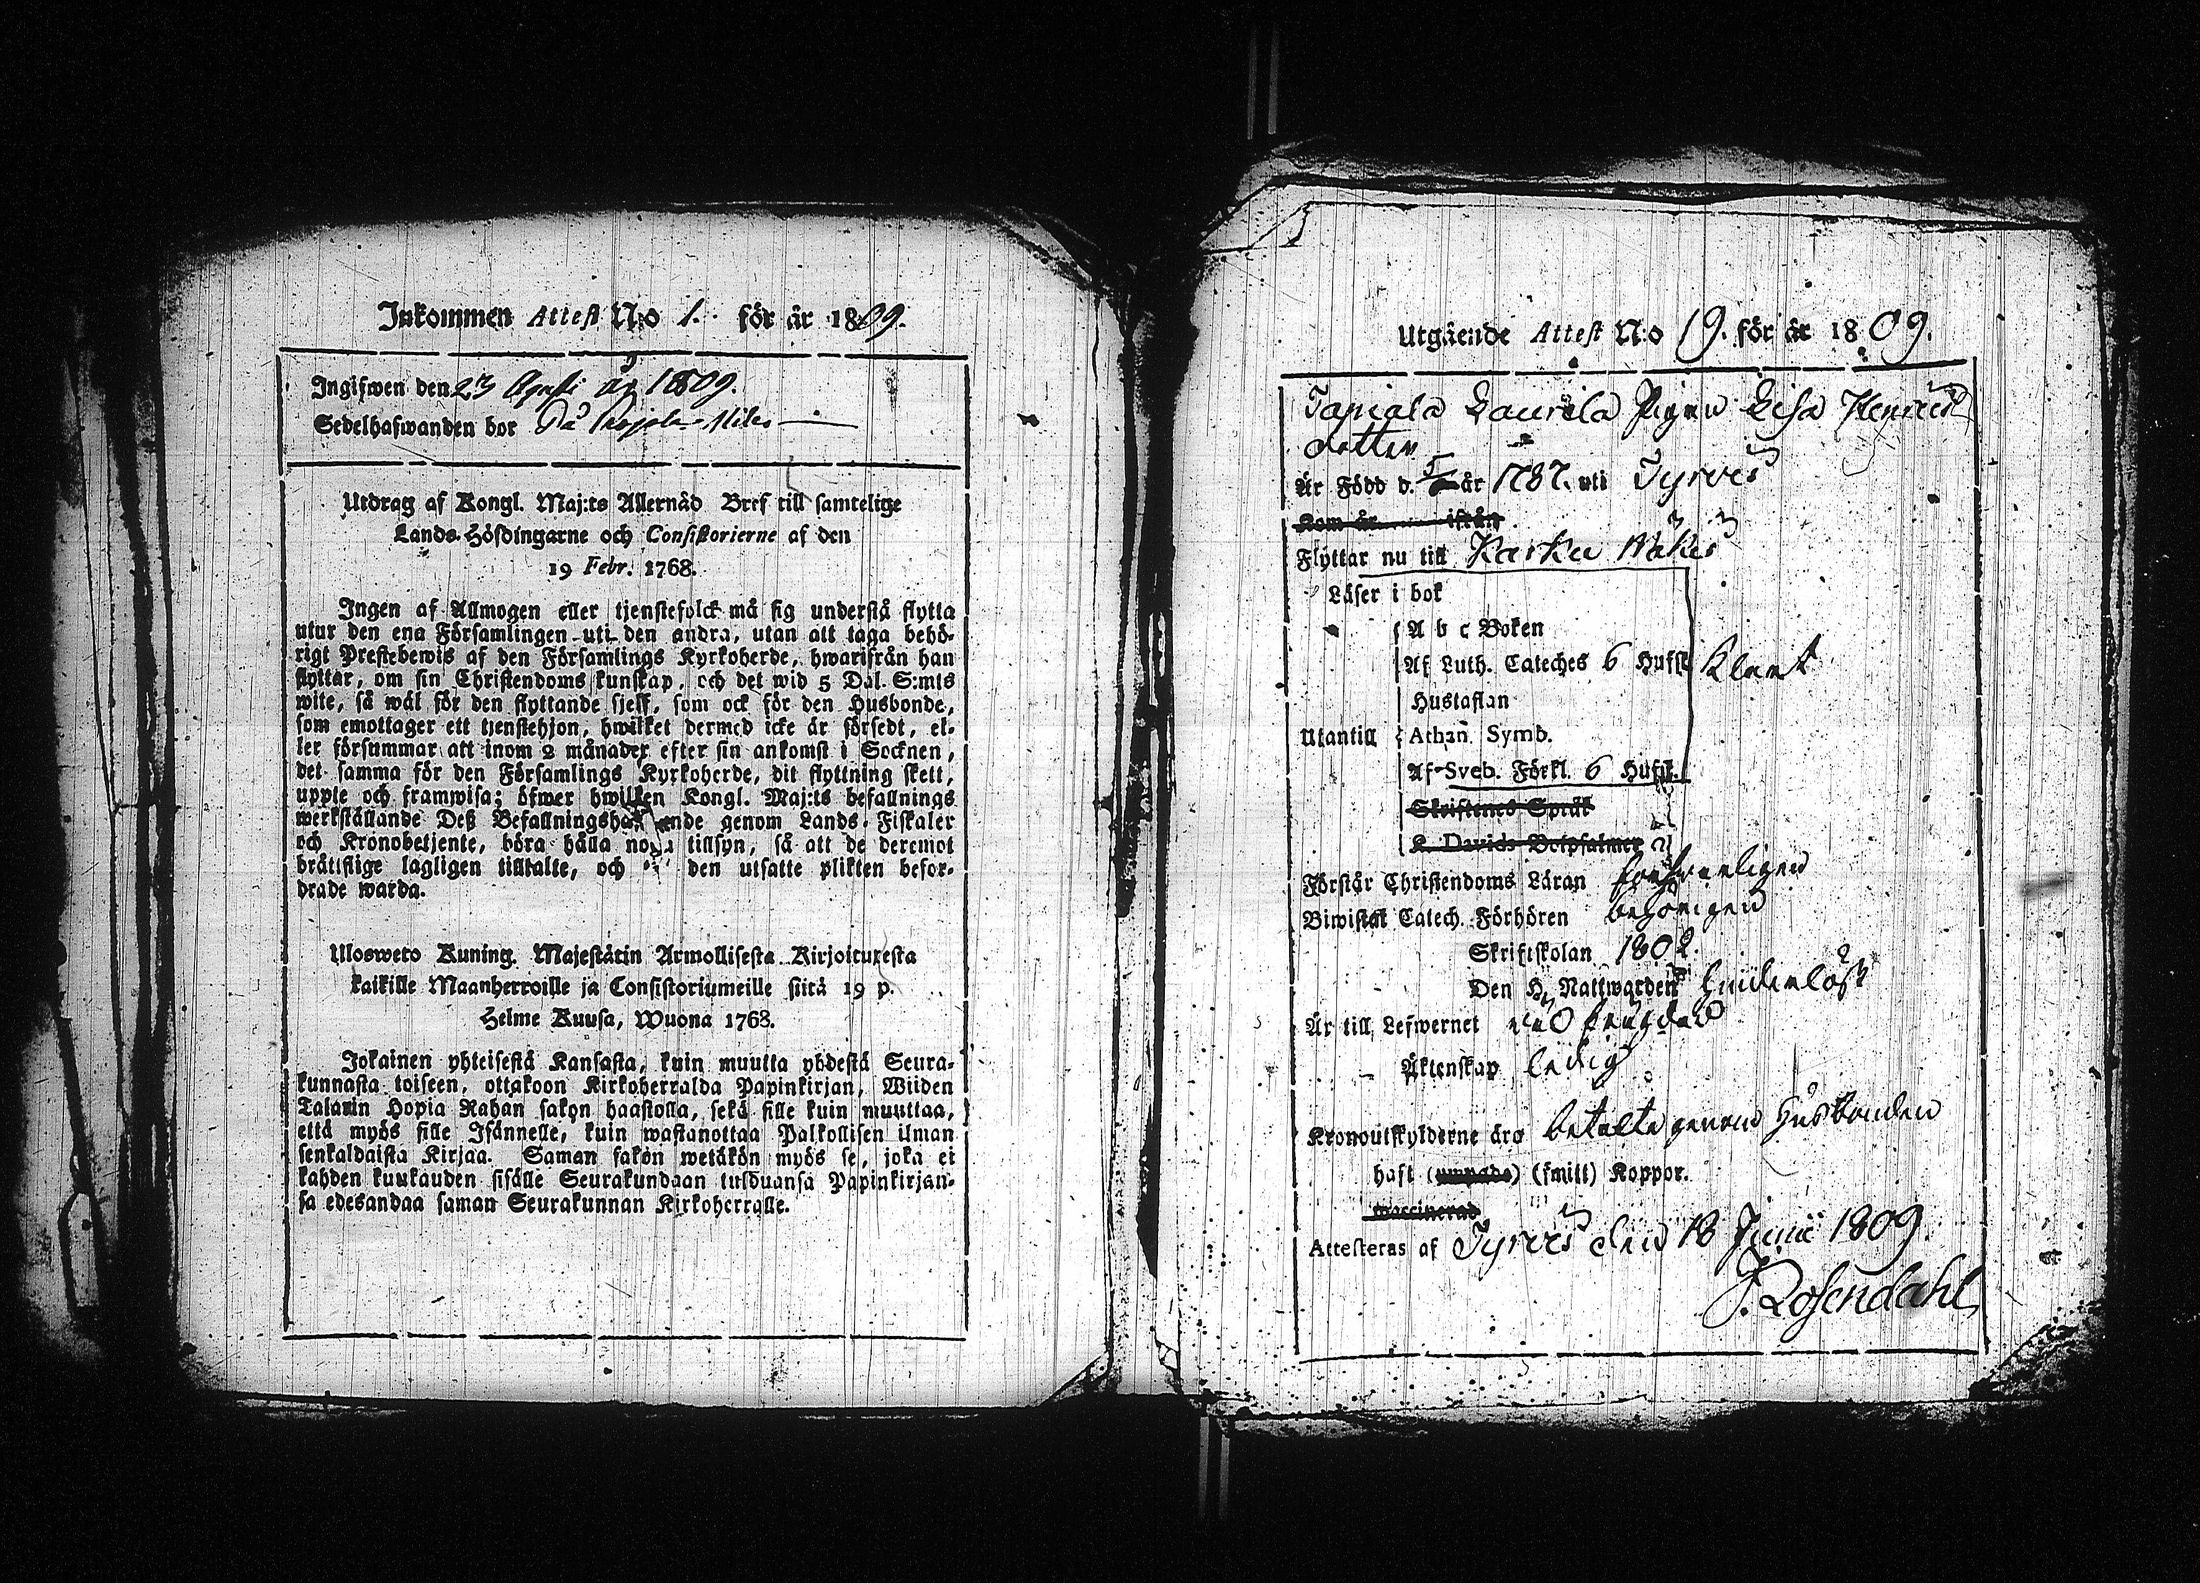 Inkommen Attest N:o 1. för år 1809.
Ingifwen den 23 Augusti 1809.
Sedelhafwanden bor På
Utdrag af Kongl. Maj:ts Allernåd Bref till samtelige
Lands-Höfdingarne och Consistorierne af den
19 Febr. 1768.
Ingen af Allmogen eller tjenstefolck må sig understå flytta
utur den ena Församlingen uti den andra, utan att taga behö-
rigt Prestebewis af den Församlings Kyrkoherde, hwarifrån han
flyttar, om sin Christendoms kunskap, och det wid 5 Dal. S:mts
wite, så wäl för den flyttande sjelf, som ock för den Husbonde,
som emottager ett tjenstehjon, hwilket dermed icke är försedt, el-
ler försummar att inom 2 månader efter sin ankomst i Socknen,
det samma för den Församlings Kyrkoherde, dit flyttning skett,
uppte och framwisa; öfwer hwilken Kongl. Maj:ts befallnings
werkställande Deß Befallningshafwande genom Lands-Fiskaler
och Kronobetjente, böra hålla noga tillsyn, så att de deremot
bråttslige lagligen tilltalte, och den utsatte plikten befor-
drade warda.
Ulosweto Kuning. Majestätin Armollisesta Kirjoituxesta
kaikille Maanherroille ja Consistoriumeille siitä 19 p.
Helme Kuusa, Wuona 1768.
Jokainen yhteisestä Kansasta, kuin muutta yhdestä Seura-
kunnasta toiseen, ottakoon Kirkoherralda Papinkirjan, Wiiden
Talarin Hopia Rahan sakon haastolla, sekä sille kuin muuttaa,
että myös sille Isännelle, kuin wastanottaa Palkollisen ilman
senkaldaista Kirjaa. Saman sakon wetäkön myös se, joka ei
kahden kuukauden sisälle Seurakundaan tulduansa Papinkirjan-
sa edesandaa saman Seurakunnan Kirkoherralle.
Utgående Attest N:o 19. för år 1809.
Tapiala Laurila Pigan Lisa Henrics
dotter
Är Född d. år 1787. uti Tyrvis
Kom år ifrån
Flyttar nu till Karku
Läser i bok
A b c Boken
Af Luth. Cateches 6 Hufst. klart
Hustaflan
Utantill Athan. Symb.
Af Sveb. Förkl. 6 Hufst.
Skriftenes Språk
K. Davids Botpsalmer
Förstår Christendoms Läran försvarligen
Biwistat Catech. Förhören behörigen
Skriftskolan 1802.
Den H. Nattwarden hinderlöst
Är till Lefwernet
Äktenskap ledig
Kronoutskylderne äro betalte genom Husbonden
haft (umnade) (smitt) Koppor.
waccinerad
Attesteras af Tyrvis den 18 Junii 1809.
J. Rosendahl